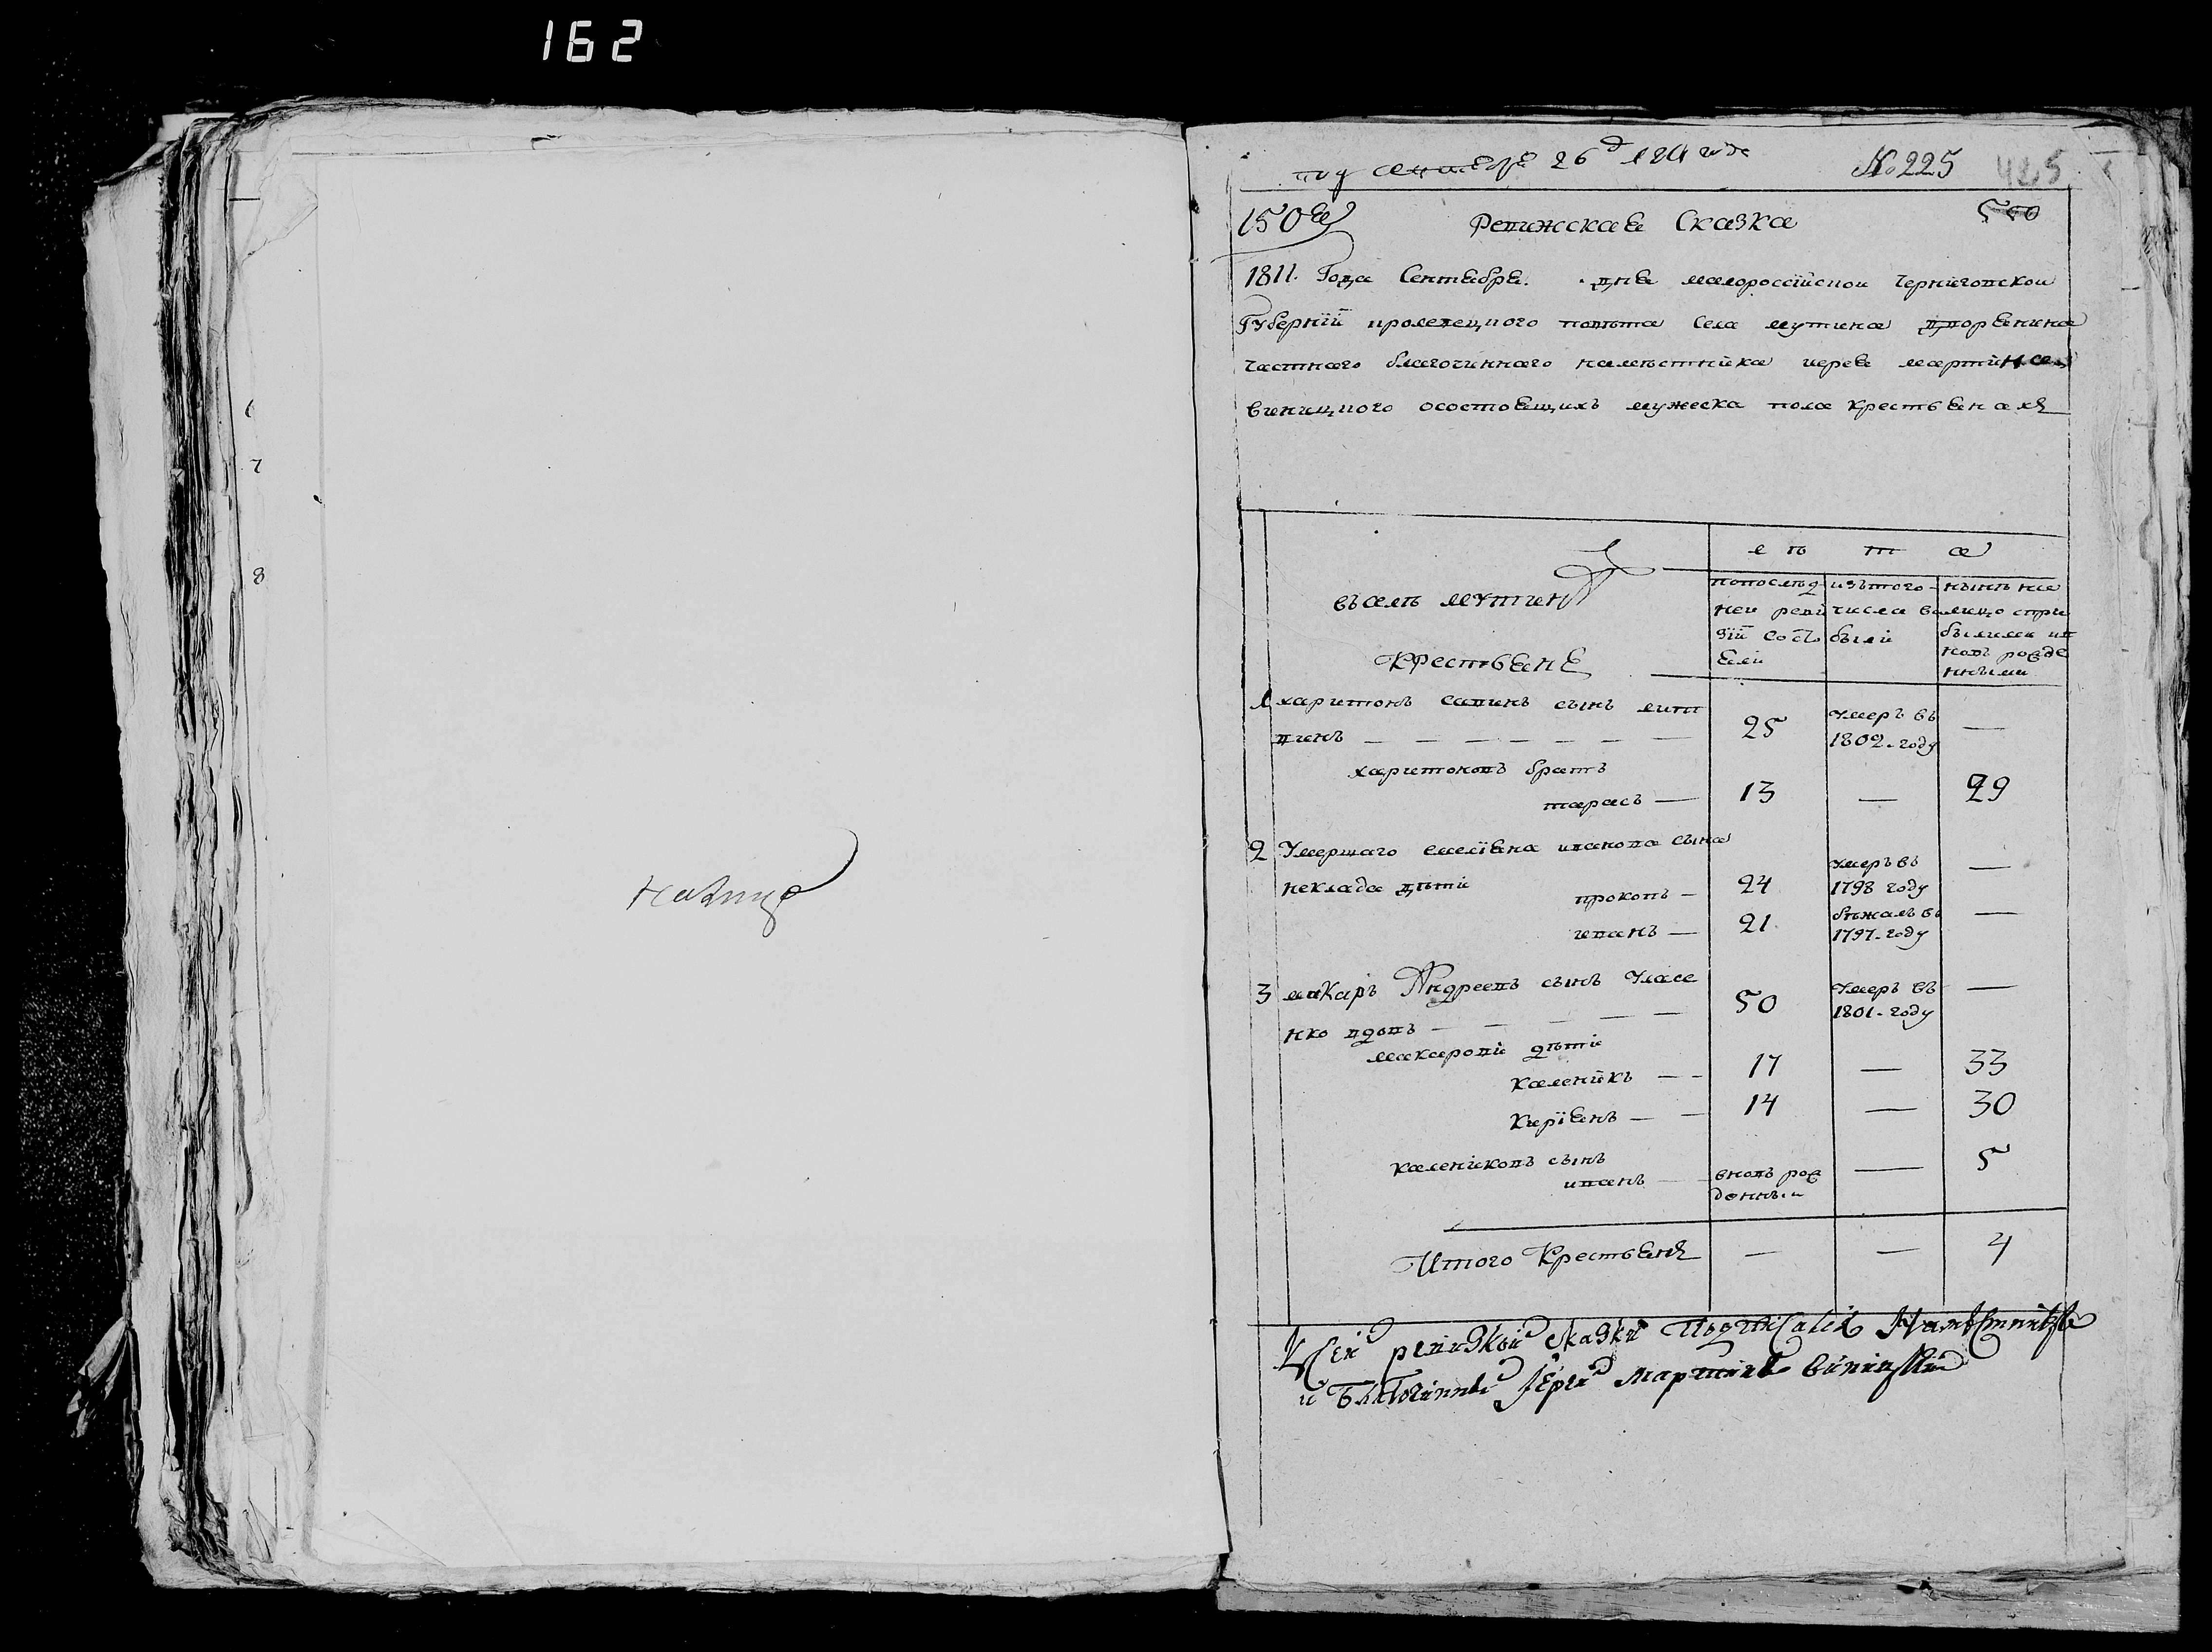 162
6
7
8
под сентябре 26 д 1811 года №225 425
150й Ревижская Сказка 500
1811. Года Сентября. дня малороссїйской Чернїговской
Губернїй кролевецкого повѣта Села мутина дворянина
частного благочинного намѣстника иерея мартина
виницкого осостоящихъ мужеска пола крестьянахъ
лѣта
въ селѣ мутинѣ
Крестьяне
попослѣдней ревизїй состояли
изътого числа выбыли
нынѣ налицо сприбылыми ивновь рожденными
1 харитонъ савинъ сынъ лит
винъ — 25 умеръ въ 1802. году —
харитоновъ братъ
тарасъ — 13 — 29
2 Умершаго емелїяна иванова сына
неклада дѣти
прокопъ — 24 умеръ въ 1798 году —
иванъ — 21 бѣжалъ въ 1797. году —
3 макаръ Андреевъ сынъ Уласе
нко вдовъ — 50 умеръ въ 1801. году —
макаровы дѣти
каленикъ — 17 — 33
Кирїянъ — 14 — 30
калениковъ сынъ
иванъ — вновь рожденный — 5
Итого Крестьянъ — — 4
К сей ревизкой сказки подписался Намѣстникъ
и Благочинный Іерей Мартинъ Виницкий